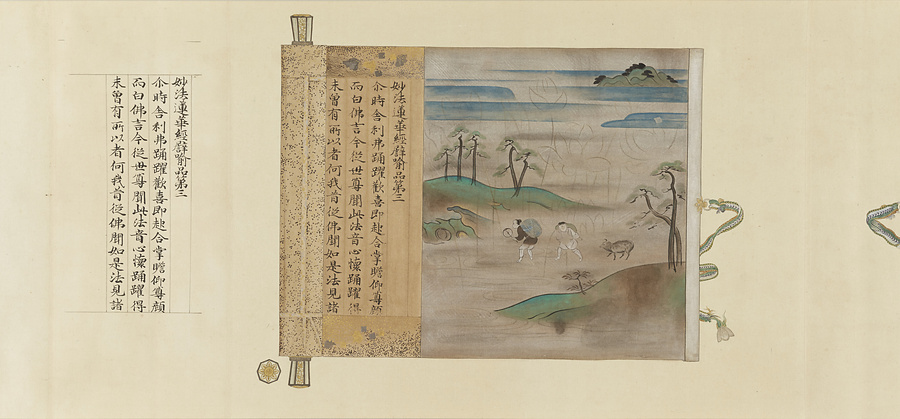 妙法蓮華經譬喻品第三
尒時舍利弗踊躍歡喜即起合掌瞻仰尊顏
而白佛言今從世尊聞此法音心懷踊躍得
未曾有所以者何我昔從佛聞如是法見諸
妙法蓮華經譬喻品第三
尒時舍利弗踊躍歡喜即起合掌瞻仰尊顏
而白佛言今從世尊聞此法音心懷踊躍得
未曾有所以者何我昔從佛聞如是法見諸